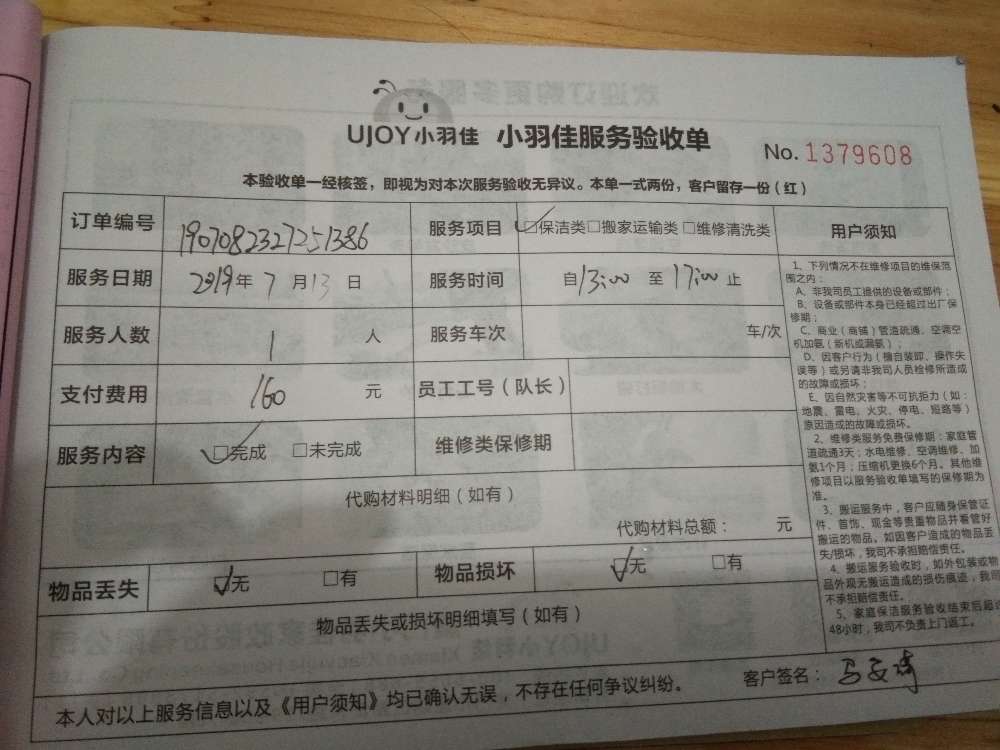 UJOY小羽佳 小羽佳服务验收单
No. 1379608
本验收单一经核签，即视为对本次服务验收无异议。本单一式两份，客户留存一份（红）
订单编号 1907082327251386 服务项目 ☑保洁类□搬家运输类□维修清洗类
服务日期 2019年7月13日 服务时间 自13:00至17:00止
服务人数 1人 服务车次 车/次
支付费用 160元 员工工号（队长）
服务内容 ☑完成 □未完成 维修类保修期
代购材料明细（如有）
代购材料总额： 元
物品丢失 ☑无 □有 物品损坏 ☑无 □有
物品丢失或损坏明细填写（如有）
本人对以上服务信息以及《用户须知》均已确认无误，不存在任何争议纠纷。
客户签名：
用户须知
1、下列情况不在维修项目的维保范
围之内：
A、非我司员工提供的设备或部件；
B、设备或部件本身已经超过出厂保
修期；
C、商业（商铺）管道疏通、空调空
机加氨（新机或漏氨）；
D、因客户行为（擅自装卸、操作失
误等）或另请非我司人员检修所造成
的故障或损坏；
E、因自然灾害等不可抗拒力（如：
地震、雷电、火灾、停电、短路等）
原因造成的故障或损坏。
2、维修类服务免费保修期：家庭管
道疏通3天；水电维修、空调维修、加
氨1个月；压缩机更换6个月。其他维
修项目以服务验收单填写的保修期为
准。
3、搬运服务中，客户应随身保管证
件、首饰、现金等贵重物品并看管好
搬运的物品。如因客户造成的物品丢
失/损坏，我司不承担赔偿责任。
4、搬运服务验收时，如外包装或物
品外观无搬运造成的损伤痕迹，我司
不承担赔偿责任。
5、家庭保洁服务验收结束后超过
48小时，我司不负责上门返工。